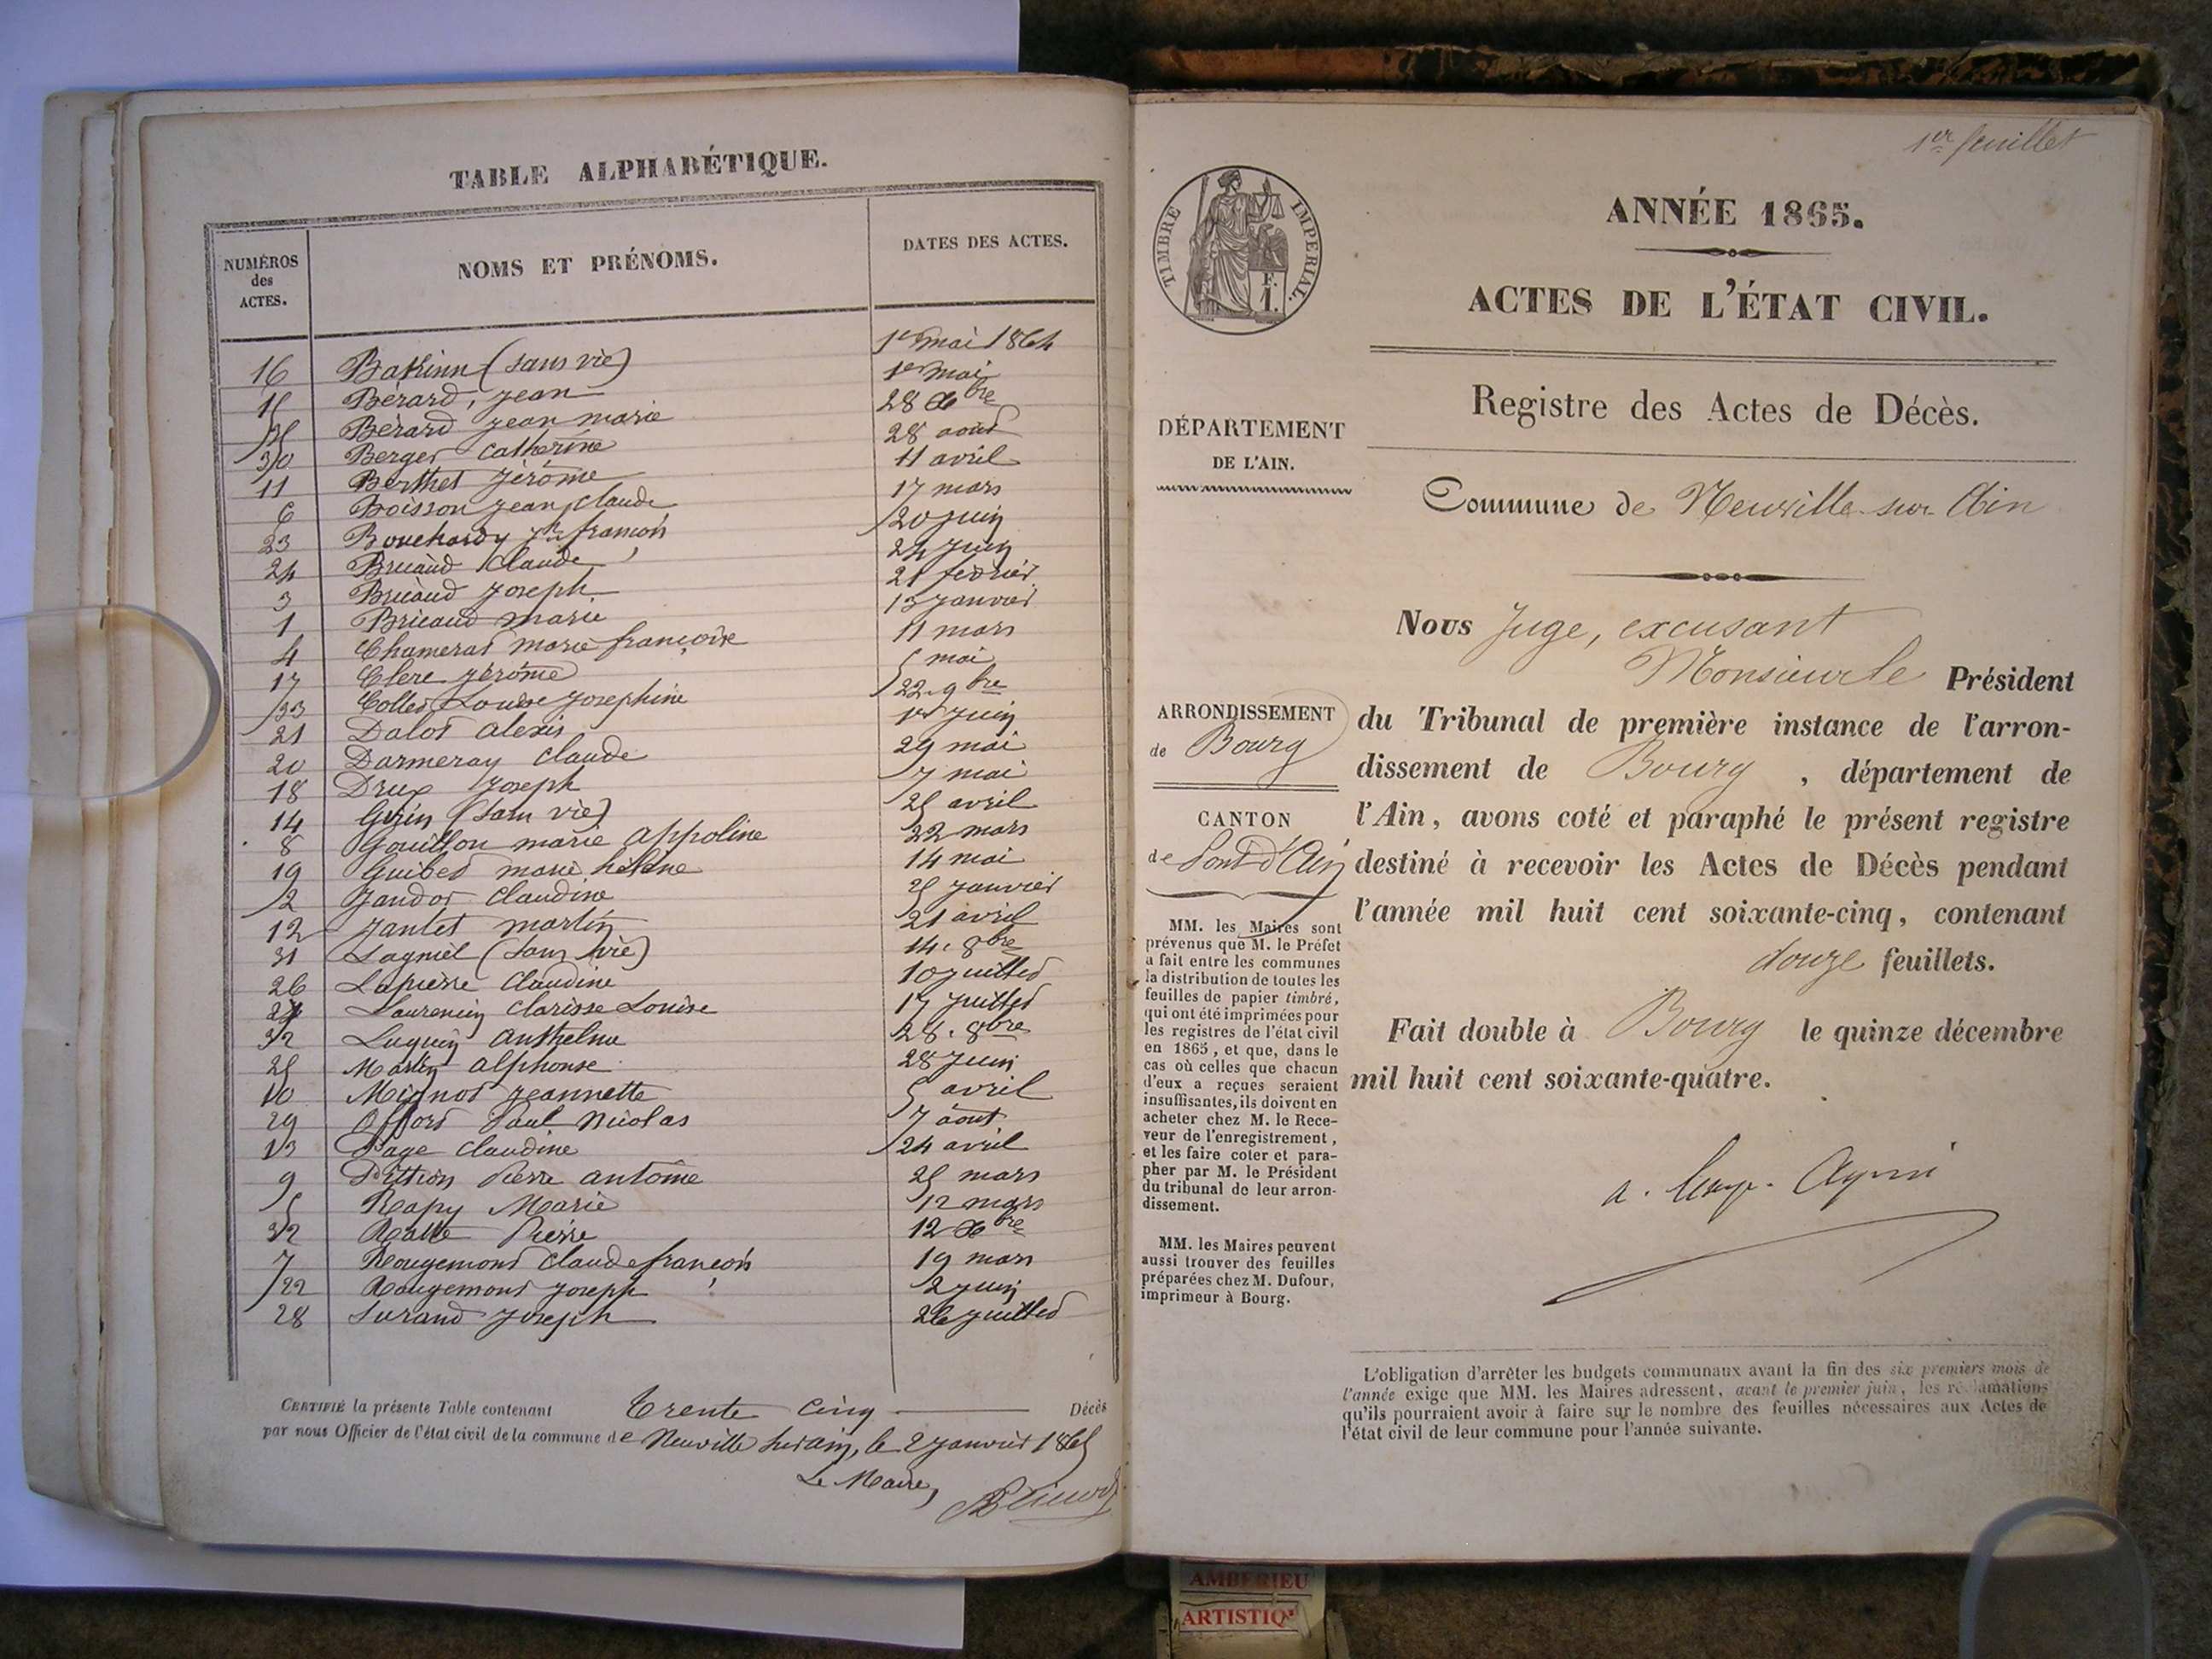 TABLE ALPHABÉTIQUE.
NUMÉROS des ACTES. NOMS ET PRÉNOMS. DATES DES ACTES.
16 (sans vie) 1er mai 1864
15 Bérard, jean 1er mai
35 Bérard jean marie 28 Xbre
30 Berger Catherine 28 aout
11 Berthet jérôme 11 avril
6 Boisson jean claude 17 mars
23 Bouchardy françois 20 juin
24 Bricaud Claude 24 juin
3 Bricaud joseph 21 février
1 Bricaud marie 13 janvier
4 Chamerat marie françoise 11 mars
17 Clerc jérôme 5 mai
33 Collet Louise josephine 22 9bre
21 Dalot alexis 1er juin
20 Darmeray Claude 29 mai
18 Drux joseph 7 mai
14 (sans vie) 25 avril
8 Gouillon marie appoline 22 mars
19 Guibet marie hélène 14 mai
2 Jandot Claudine 25 janvier
12 Jantet martin 21 avril
31 Lagniel (sans vie) 14. 8bre
26 Lapierre Claudine 10 juillet
27 Laurencin Clarisse Louise 17 juillet
32 Luquin anthelme 28. 8bre
25 Martin alphonse 28 juin
10 Mignot jeannette 5 avril
29 Paul Nicolas 7 aout
13 Page Claudine 24 avril
9 Pierre antoine 25 mars
5 Rapy Marie 12 mars
32 Pierre 12 Xbre
7 Rougemont Claude françois 19 mars
22 Rougemont joseph 2 juin
28 Surand joseph 26 juillet
CERTIFIÉ la présente Table contenant trente cinq Décès
par nous Officier de l'état civil de la commune de Neuville sur ain, le 2 janvier 1865
Le Maire,
1er feuillet
TIMBRE IMPERIAL.
F.
1.
ANNÉE 1865.
ACTES DE L'ÉTAT CIVIL.
Registre des Actes de Décès.
DÉPARTEMENT
DE L'AIN.
Commune de Neuville sur Ain
Nous Juge, excusant
Monsieur le Président
du Tribunal de première instance de l'arron-
dissement de Bourg, département de
l'Ain, avons coté et paraphé le présent registre
destiné à recevoir les Actes de Décès pendant
l'année mil huit cent soixante-cinq, contenant
douze feuillets.
Fait double à Bourg le quinze décembre
mil huit cent soixante-quatre.
ARRONDISSEMENT
de Bourg
CANTON
de Pont d'Ain
MM. les Maires sont
prévenus que M. le Préfet
a fait entre les communes
la distribution de toutes les
feuilles de papier timbré,
qui ont été imprimées pour
les registres de l'état civil
en 1865, et que, dans le
cas où celles que chacun
d'eux a reçues seraient
insuffisantes, ils doivent en
acheter chez M. le Rece-
veur de l'enregistrement,
et les faire coter et para-
pher par M. le Président
du tribunal de leur arron-
dissement.
MM. les Maires peuvent
aussi trouver des feuilles
préparées chez M. Dufour,
imprimeur à Bourg.
L'obligation d'arrêter les budgets communaux avant la fin des six premiers mois de
l'année exige que MM. les Maires adressent, avant le premier juin, les réclamations
qu'ils pourraient avoir à faire sur le nombre des feuilles nécessaires aux Actes de
l'état civil de leur commune pour l'année suivante.
AMBERIEU
ARTISTIQ